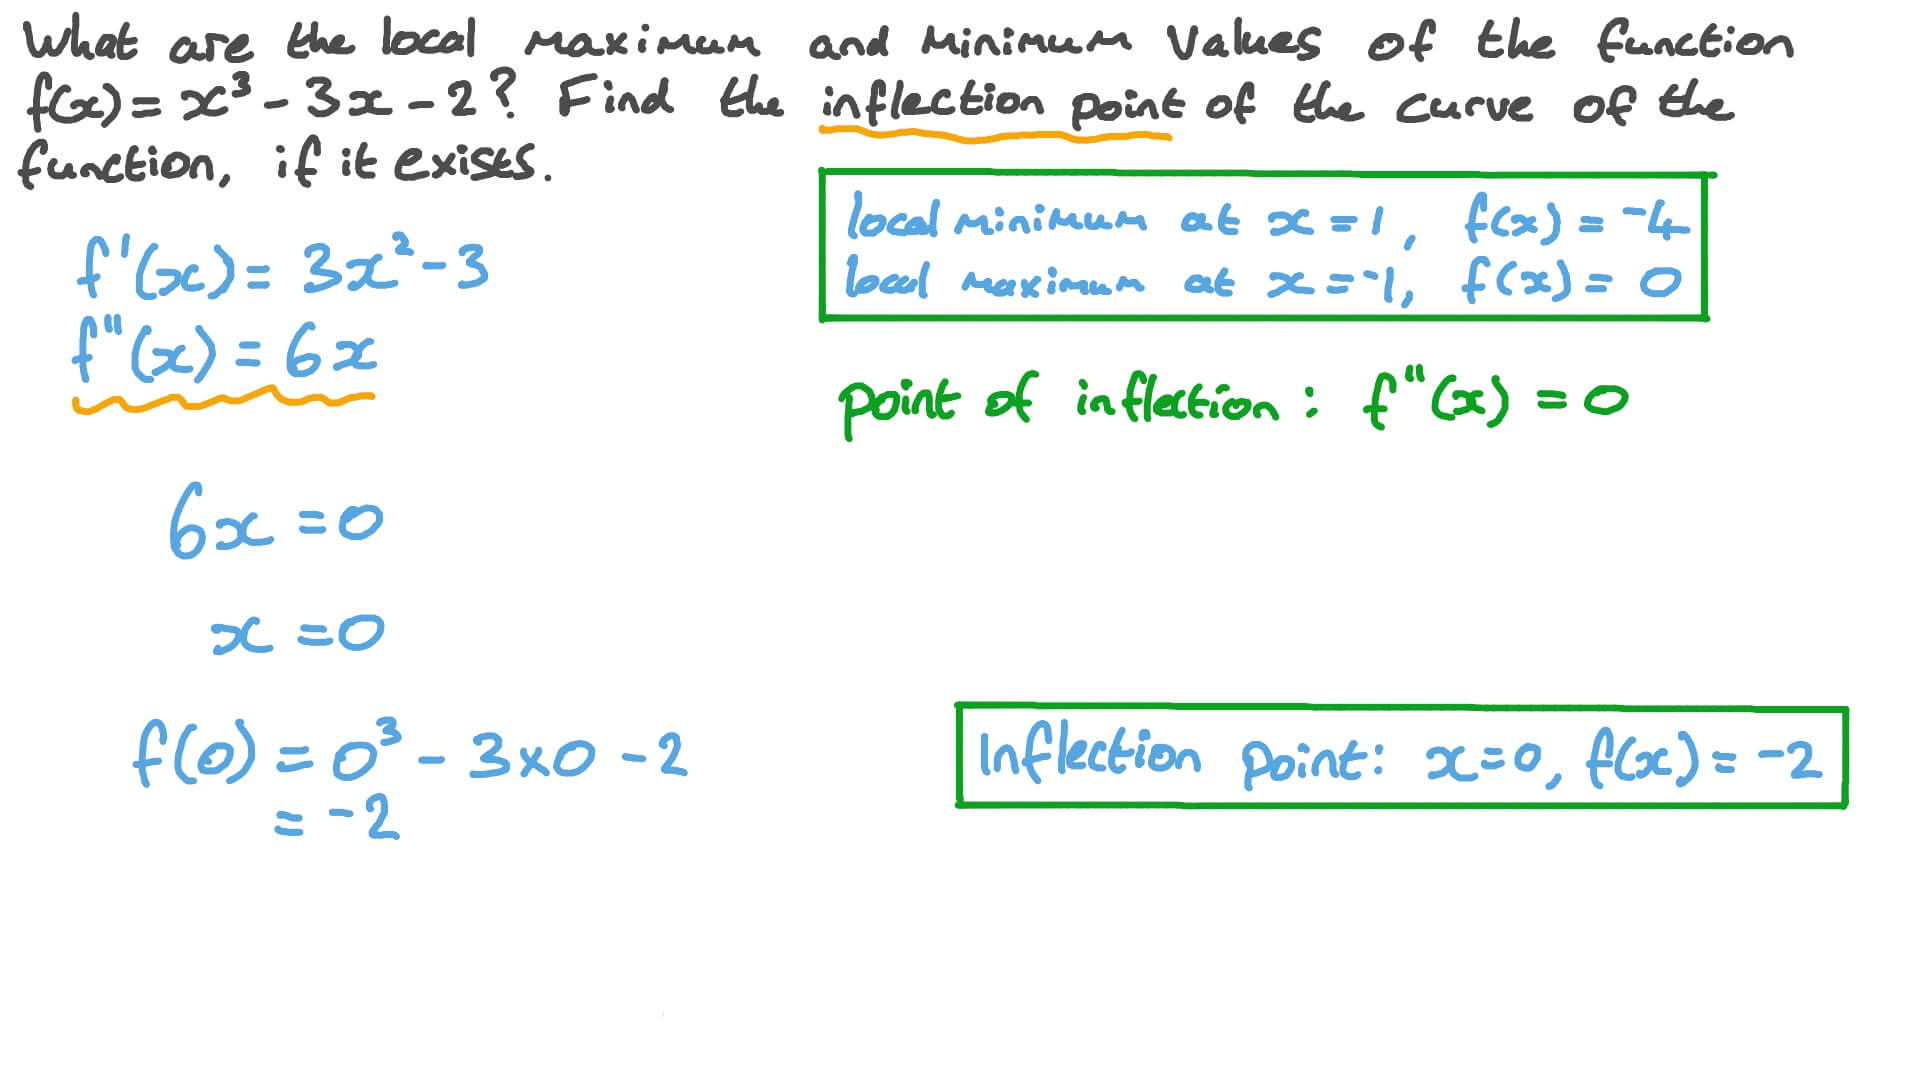 What are the local maximum and minimum values of the function
f(x) = x³ - 3x - 2? Find the inflection point of the curve of the
function, if it exists.
f'(x) = 3x² - 3
f''(x) = 6x
local minimum at x = 1, f(x) = -4
local maximum at x = -1, f(x) = 0
point of inflection : f''(x) = 0
6x = 0
x = 0
f(0) = 0³ - 3×0 - 2
= -2
Inflection point: x=0, f(x) = -2